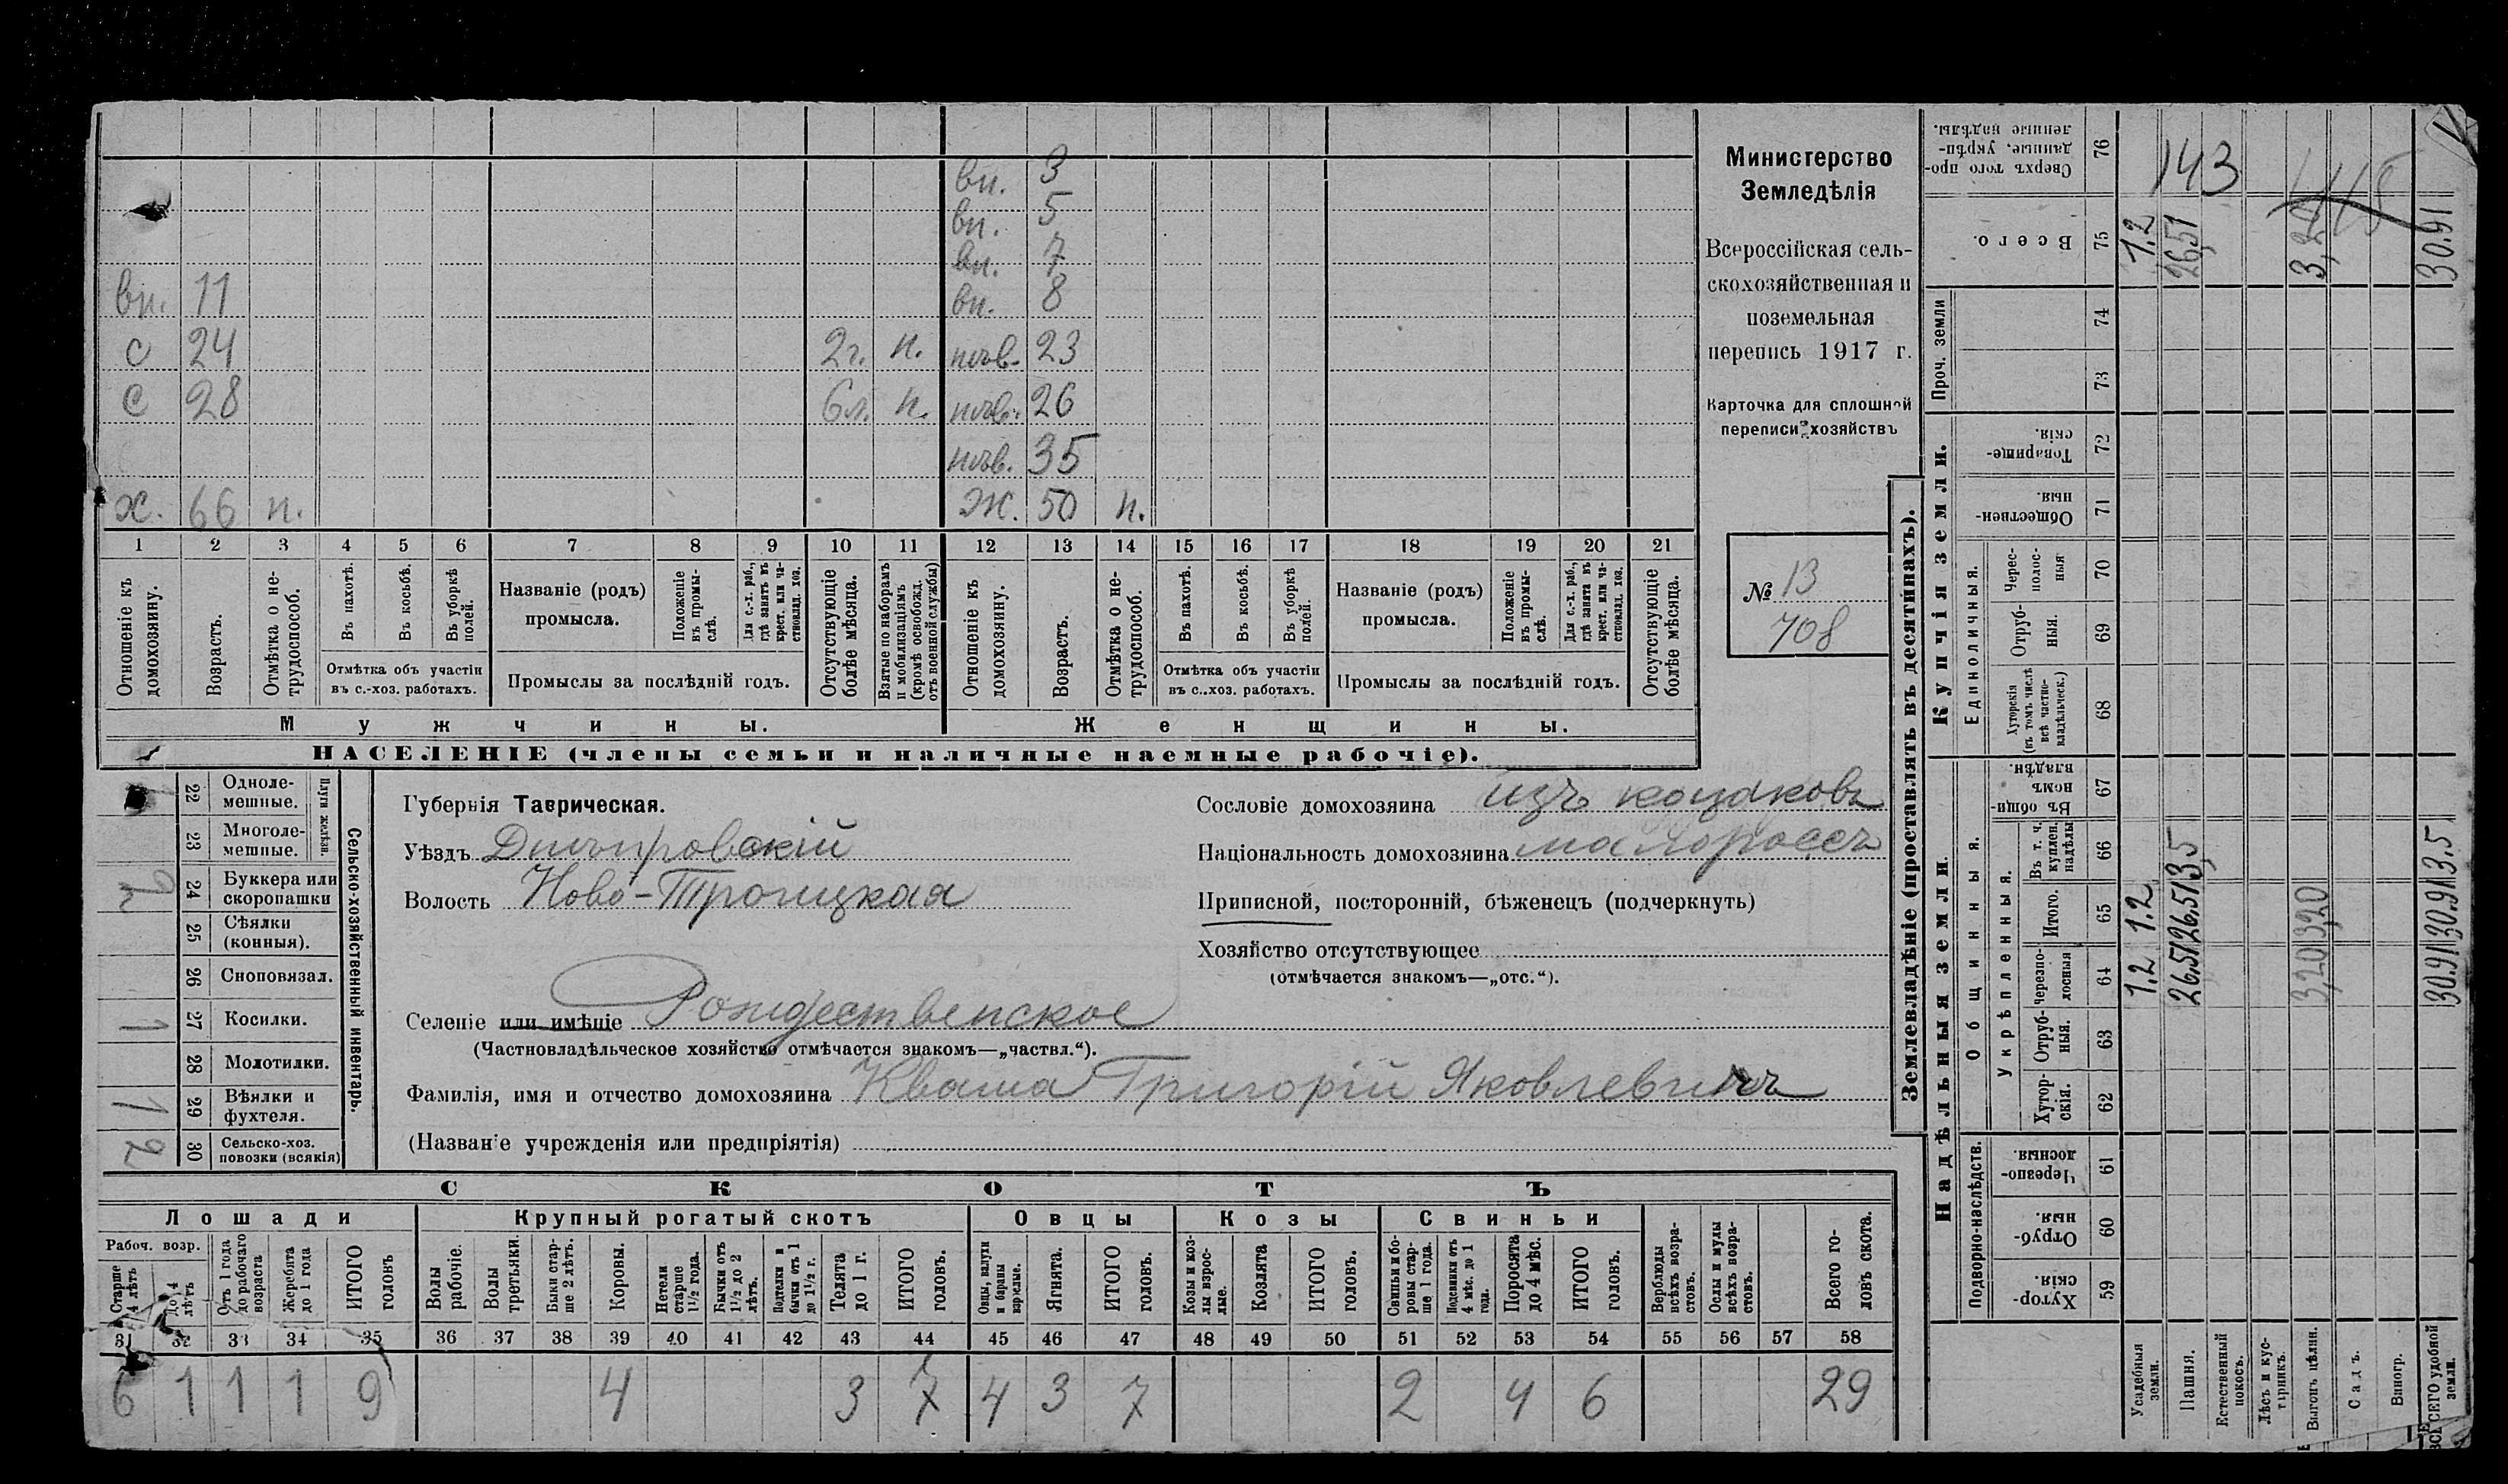 вн. 3
вн. 5
вн. 7
вн. 11 вн. 8
с 24 2г. п. нев. 23
с 28 6л. п. нев. 26
нев. 35
х. 66 п. Ж. 50 п.
1 2 3 4 5 6 7 8 9 10 11 12 13 14 15 16 17 18 19 20 21
Отношеніе къ домохозяину.
Возрастъ.
Отмѣтка о не-трудоспособ.
Въ пахотѣ.
Въ косьбѣ.
Въ уборкѣ полей.
Отмѣтка объ участіи
въ с.-хоз. работахъ.
Названіе (родъ)
промысла.
Положеніе въ промы-слѣ.
Для с.-х. раб., гдѣ занятъ въ крест. или ча-стновлад. хоз.
Промыслы за послѣдній годъ.
Отсутствующіе болѣе мѣсяца.
Взятые по наборамъ и мобилизаціямъ (кромѣ освобожд. отъ военной службы)
Отношеніе къ домохозяину.
Возрастъ.
Отмѣтка о не-трудоспособ.
Въ пахотѣ.
Въ косьбѣ.
Въ уборкѣ полей.
Отмѣтка объ участіи
въ с..хоз. работахъ.
Названіе (родъ)
промысла.
Положеніе въ промы-слѣ.
Для с.-х. раб., гдѣ занята въ крест. или ча-стновлад. хоз.
Промыслы за послѣдній годъ.
Отсутствующіе болѣе мѣсяца.
Мужчины. Женщины.
НАСЕЛЕНІЕ (члены семьи и наличные наемные рабочіе).
Министерство
Земледѣлія
Всероссійская сель-
скохозяйственная и
поземельная
перепись 1917 г.
Карточка для сплошной
переписи хозяйствъ
№ 13
708
Сельско-хозяйственный инвентарь.
Плуги желѣзн.
22 Одноле-мешные.
23 Многоле-мешные.
24 Буккера или скоропашки
25 Сѣялки (конныя).
26 Сноповязал.
1 27 Косилки.
28 Молотилки.
1 29 Вѣялки и фухтеля.
2 30 Сельско-хоз. повозки (всякія)
Губернія Таврическая.
Уѣздъ Днѣпровскій
Волость Ново-Троицкая
Селеніе или имѣніе Рождественское
(Частновладѣльческое хозяйство отмѣчается знакомъ—„частвл.“).
Фамилія, имя и отчество домохозяина Кваша Григорій Яковлевичъ
(Названіе учрежденія или предпріятія)
Сословіе домохозяина изъ козаковъ
Національность домохозяина малороссъ
Приписной, посторонній, бѣженецъ (подчеркнуть)
Хозяйство отсутствующее
(отмѣчается знакомъ—„отс.“).
СКОТЪ
Лошади Крупный рогатый скотъ Овцы Козы Свиньи
Рабоч. возр.
Старше 4 лѣтъ
До 4 лѣтъ
Отъ 1 года до рабочаго возраста
Жеребята до 1 года
ИТОГО головъ
Волы рабочіе.
Волы третьяки.
Быки стар-ше 2 лѣтъ.
Коровы.
Нетели старше 1½ года.
Бычки отъ 1½ до 2 лѣтъ.
Подтелки и бычки отъ 1 до 1½ г.
Телята до 1 г.
ИТОГО головъ.
Овцы, валухи и бараны взрослые.
Ягнята.
ИТОГО головъ.
Козы и коз-лы взрос-лые.
Козлята
ИТОГО головъ.
Свиньи бо-ровы стар-ше 1 года.
Подсвинки отъ 4 мѣс. до 1 года.
Поросята до 4 мѣс.
ИТОГО головъ.
Верблюды всѣхъ возра-стовъ.
Ослы и мулы всѣхъ возра-стовъ.
Всего го-ловъ скота.
31 32 33 34 35 36 37 38 39 40 41 42 43 44 45 46 47 48 49 50 51 52 53 54 55 56 57 58
6 1 1 1 9 4 3 7 4 3 7 2 4 6 29
Землевладѣніе (проставлять въ десятинахъ).
Надѣльныя земли. Купчія земли. Проч. земли
Подворно-наслѣдств. Общинныя. Единоличныя.
Укрѣпленныя.
Хутор-скія. 59
Отруб-ныя. 60
Черезпо-лосныя. 61
Хутор-скія. 62
Отруб-ныя. 63
Черезпо-лосныя 64
Итого. 65
Въ т. ч. куплен. надѣлы 66
Въ общин-номъ владѣн. 67
Хуторскія (въ томъ числѣ всѣ частно-владѣльческ.) 68
Отруб-ныя. 69
Черес-полос-ныя 70
Обществен-ныя. 71
Товарище-скія. 72
73
74
Всего. 75
Сверхъ того про-данные, укрѣп-ленные надѣлы. 76
Усадебныя земли. 1.2 1.2 1.2
Пашня. 26,51 26,51 3,5 26,51
Естественный покосъ.
Лѣсъ и кус-тарникъ.
Выгонъ цѣлин. 3,20 3,20 3,20
Садъ.
Виногр.
ВСЕГО удобной земли. 30.91 30.91 3.5 30.91
143